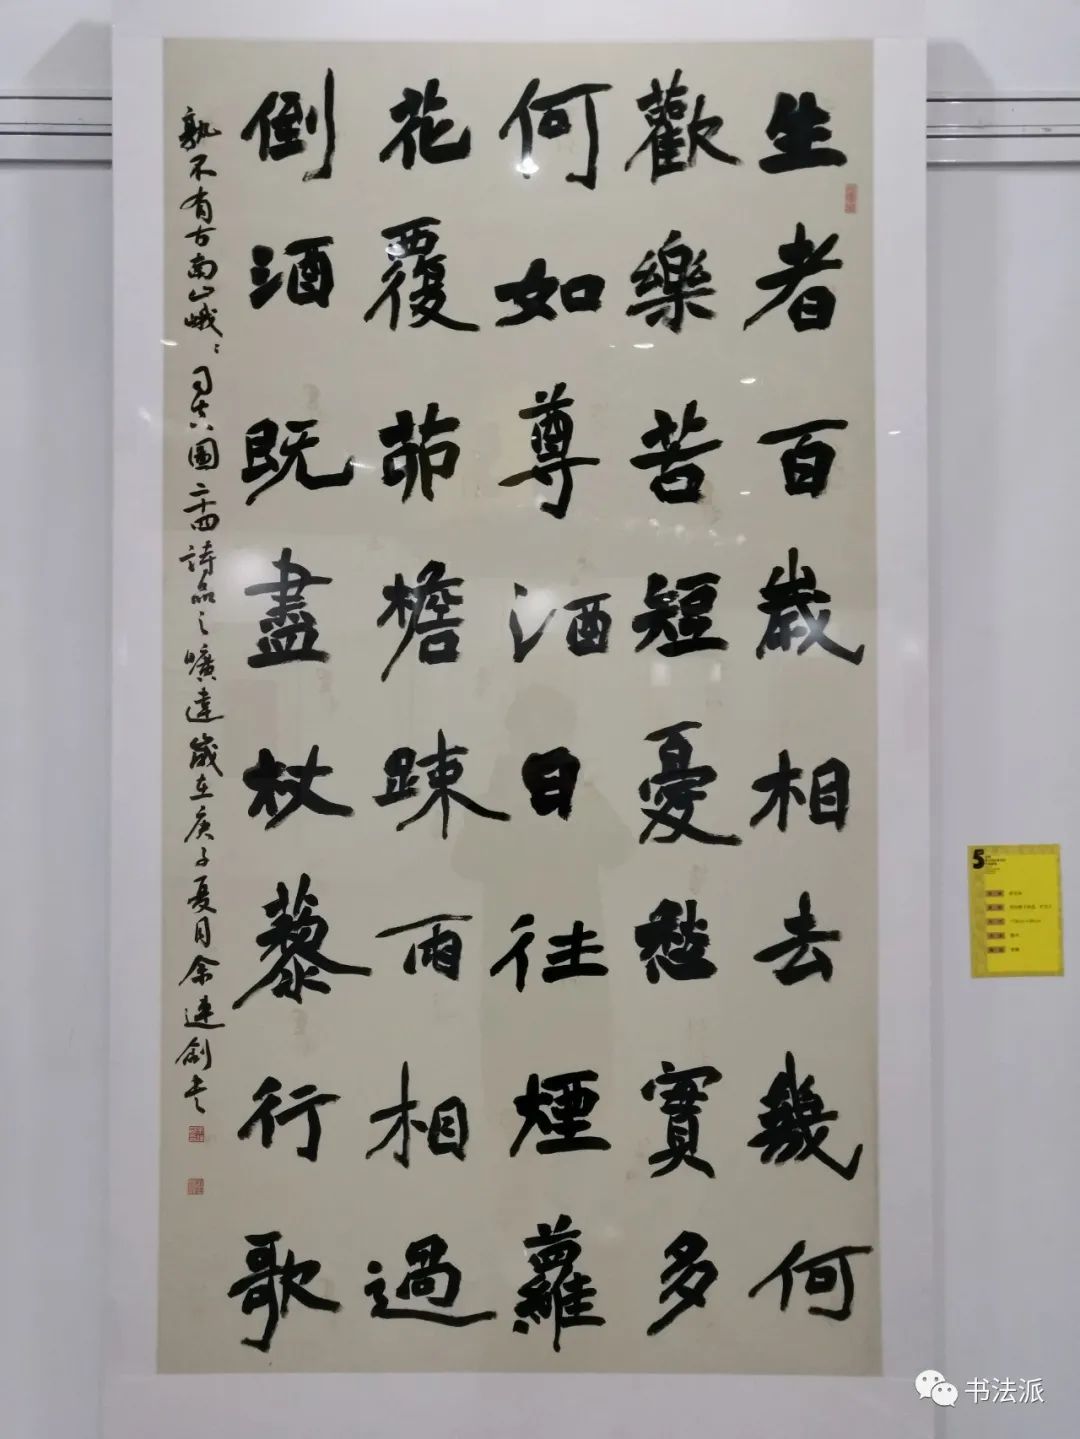 生者百歲相去幾何
歡樂苦短憂愁實多
何如尊酒日往煙蘿
花覆茆檐疎雨相過
倒酒既盡杖藜行歌
孰不有古南山峨〻司空圖二十四詩品之曠達歲在庚子夏月余連劍書
5
书法派